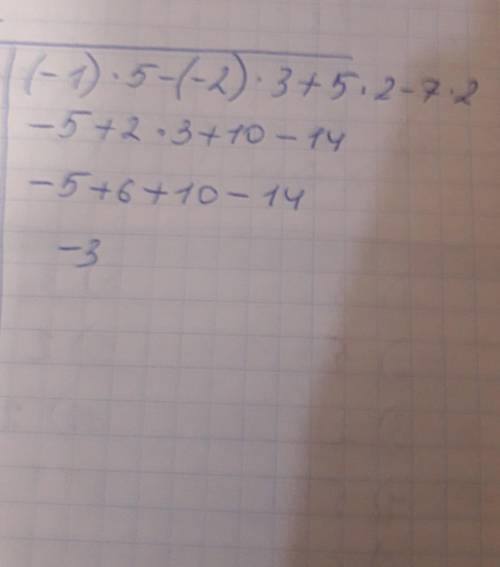 (-1) · 5 - (-2) · 3 + 5 · 2 - 7 · 2
-5 + 2 · 3 + 10 - 14
-5 + 6 + 10 - 14
-3